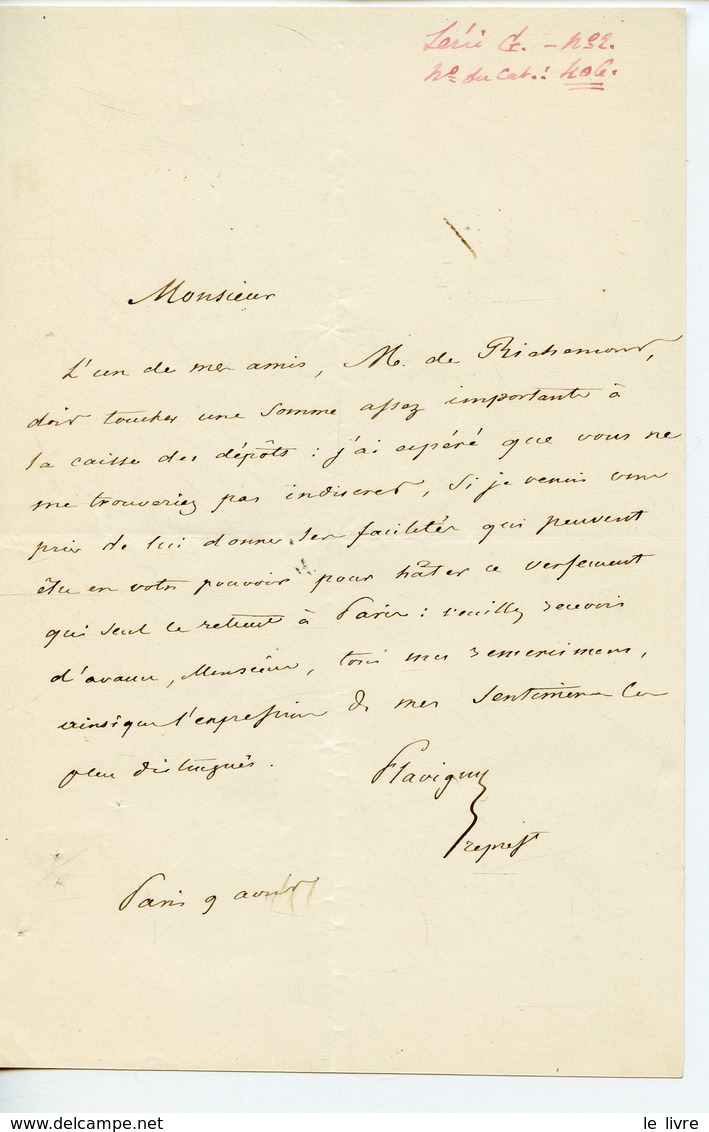 Série G. - No 2.
No du Cat.: 406.
Monsieur
L'un de mes amis, M. de Richemont,
doit toucher une somme assez importante à
la caisse des dépôts : j'ai espéré que vous ne
me trouveriez pas indiscret, si je venais vous
prier de lui donner les facilités qui peuvent
être en votre pouvoir pour hâter ce versement
qui seul le retient à Paris : veuillez recevoir
d'avance, Monsieur, tous mes remerciemens,
ainsi que l'expression de mes sentimens les
plus distingués.
Flavigny
Paris 9 avril
www.delcampe.net
le livre